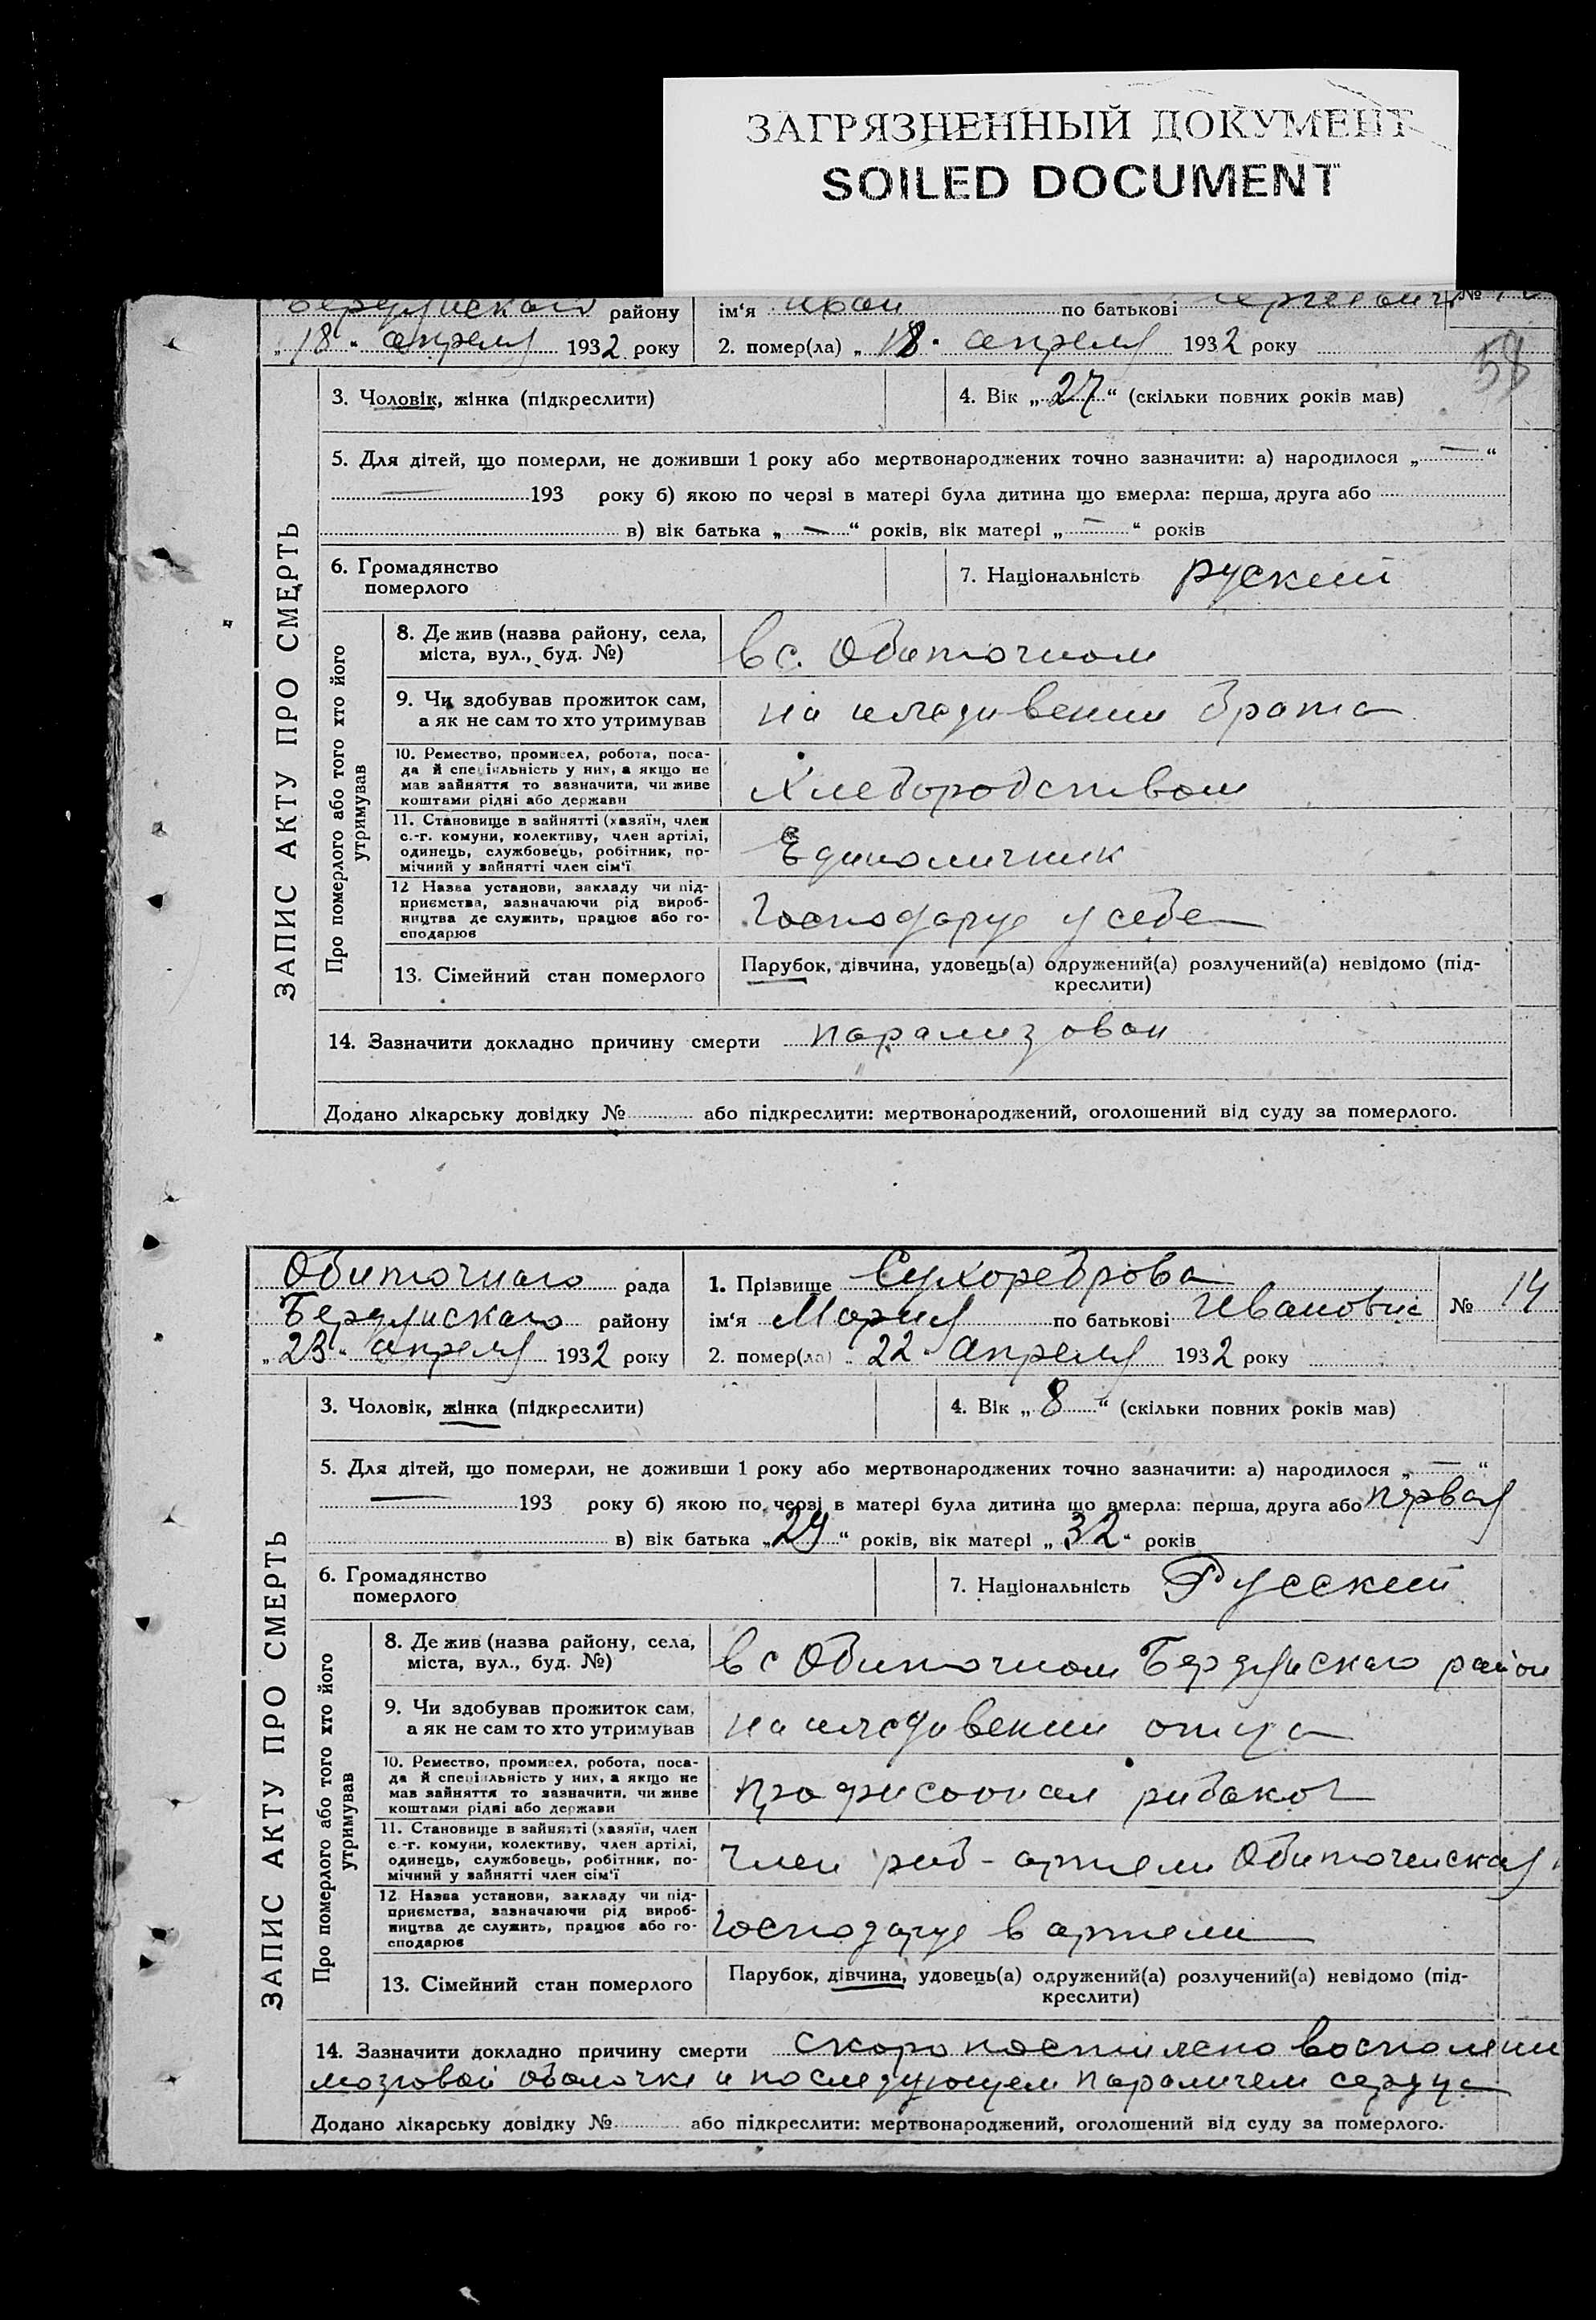 ЗАГРЯЗНЕННЫЙ ДОКУМЕНТ
SOILED DOCUMENT
району ім'я Иван по батькові №
„18" апреля 1932 року 2. помер(ла) „18" апреля 1932 року
58
ЗАПИС АКТУ ПРО СМЕРТЬ
3. Чоловік, жінка (підкреслити) 4. Вік „27" (скільки повних років мав)
5. Для дітей, що померли, не доживши 1 року або мертвонароджених точно зазначити: а) народилося „—"
— 193 року б) якою по черзі в матері була дитина що вмерла: перша, друга або
в) вік батька „—" років, вік матері „—" років
6. Громадянство померлого 7. Національність руский
Про померлого або того хто його утримував
8. Де жив (назва району, села,
міста, вул., буд. №) в с. Обиточном
9. Чи здобував прожиток сам,
а як не сам то хто утримував на иждивении брата
10. Ремество, промисел, робота, поса-
да й спеціяльність у них, а якщо не
мав зайняття то зазначити, чи живе
коштами рідні або держави Хлеборобством
11. Становище в зайнятті (хазяїн, член
с.-г. комуни, колективу, член артілі,
одинець, службовець, робітник, по-
мічний у зайнятті член сім'ї Единоличник
12 Назва установи, закладу чи під-
приємства, зазначаючи рід вироб-
ництва де служить, працює або го-
сподарює Господарує у себе
13. Сімейний стан померлого Парубок, дівчина, удовець(а) одружений(а) розлучений(а) невідомо (під-
креслити)
14. Зазначити докладно причину смерти парализован
Додано лікарську довідку № або підкреслити: мертвонароджений, оголошений від суду за померлого.
Обиточнаго рада 1. Прізвище Сухореброва № 14
Бердянскаго району ім'я Мария по батькові Ивановна
„23" апреля 1932 року 2. помер(ла) „22" апреля 1932 року
ЗАПИС АКТУ ПРО СМЕРТЬ
3. Чоловік, жінка (підкреслити) 4. Вік „8" (скільки повних років мав)
5. Для дітей, що померли, не доживши 1 року або мертвонароджених точно зазначити: а) народилося „—"
— 193 року б) якою по черзі в матері була дитина що вмерла: перша, друга або первая
в) вік батька „29" років, вік матері „32" років
6. Громадянство померлого 7. Національність Русский
Про померлого або того хто його утримував
8. Де жив (назва району, села,
міста, вул., буд. №) в с Обиточном Бердянскаго район
9. Чи здобував прожиток сам,
а як не сам то хто утримував на иждивении отца
10. Ремество, промисел, робота, поса-
да й спеціяльність у них, а якщо не
мав зайняття то зазначити, чи живе
коштами рідні або держави рибаков
11. Становище в зайнятті (хазяїн, член
с.-г. комуни, колективу, член артілі,
одинець, службовець, робітник, по-
мічний у зайнятті член сім'ї Член риб-артели Обиточенская
12 Назва установи, закладу чи під-
приємства, зазначаючи рід вироб-
ництва де служить, працює або го-
сподарює Господарує в артели
13. Сімейний стан померлого Парубок, дівчина, удовець(а) одружений(а) розлучений(а) невідомо (під-
креслити)
14. Зазначити докладно причину смерти
мозговой оболочке и последующем параличем сердца
Додано лікарську довідку № або підкреслити: мертвонароджений, оголошений від суду за померлого.